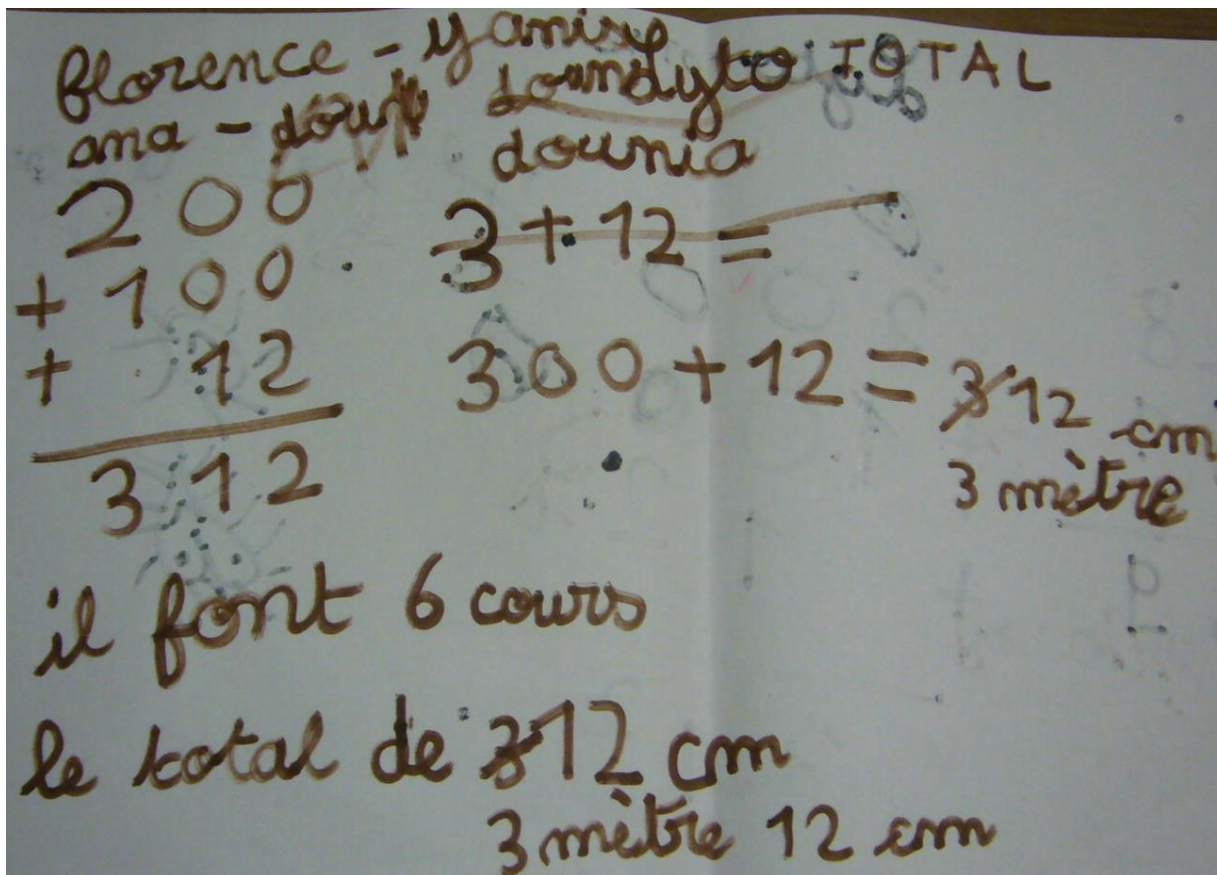 florence - yanis
TOTAL
ana -
dounia
200
+ 100
+ 12
312
3 + 12 =
300 + 12 = 312 cm
3 mètre
il font 6 cours
le total de 312 cm
3 mètre 12 cm